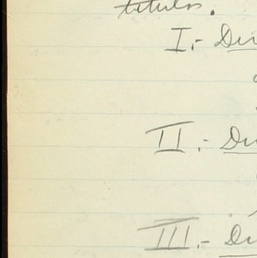 titulos.
I.- Di
II.- Di
III.- Di